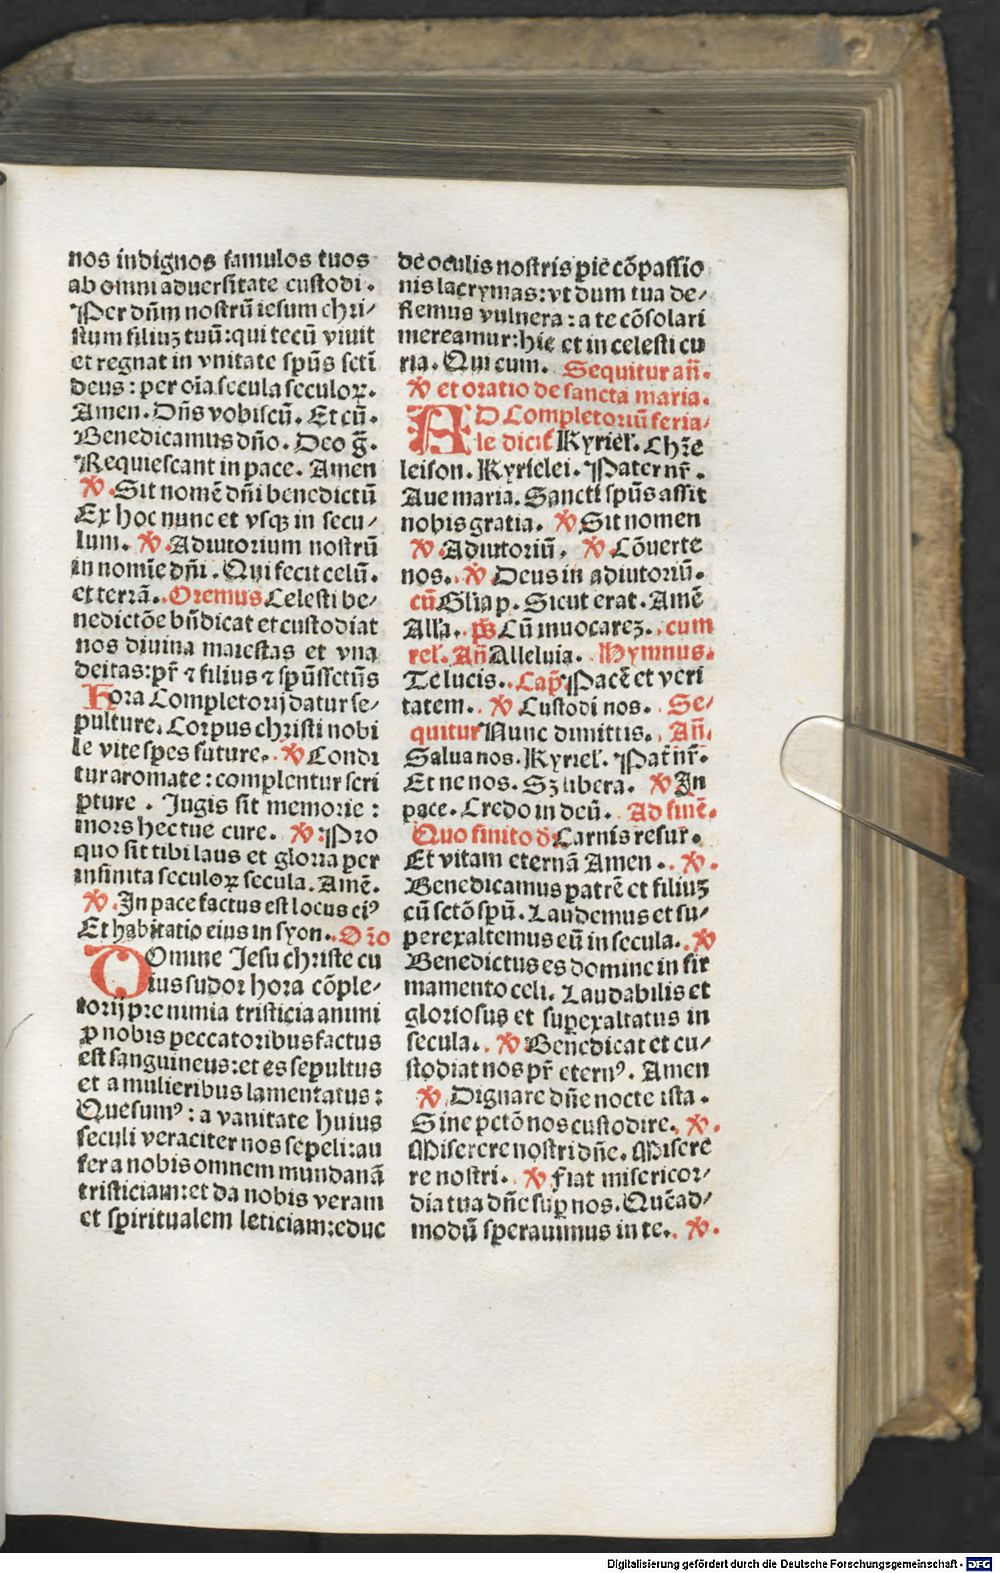 nos indignos famulos tuos
ab omni aduersitate custodi.
Per dñm nostrũ iesum chri⸗
stum filiuʒ tuũ: qui tecũ viuit
et regnat in vnitate spũs scti
deus: per oĩa secula seculoꝝ.
Amen. Dñs vobiscũ. Et cũ.
Benedicamus dño. Deo g̃.
Requiescant in pace. Amen
℣. Sit nomẽ dñi benedictũ
Ex hoc nunc et vsqʒ in secu⸗
lum. ℣. Adiutorium nostrũ
in nomĩe dñi. Qui fecit celũ.
et terrã. Oremus Celesti be⸗
nedictõe bñdicat et custodiat
nos diuina maiestas et vna
deitas: pr̃ ⁊ filius ⁊ spũssctũs
Hora Completorij datur se⸗
pulture. Corpus christi nobi
le vite spes future. ℣ Condi
tur aromate: complentur scri
pture. Jugis sit memorie:
mors hec tue cure. ℣: Pro
quo sit tibi laus et gloria per
infinita seculoꝝ secula. Amẽ.
℣. In pace factus est locus eiꝰ
Et habitatio eius in syon. Oꝛ̃o
DOmine Jesu christe cu
ius sudor hora cõple⸗
torij pre nimia tristicia animi
ꝓ nobis peccatoribus factus
est sanguineus: et es sepultus
et a mulieribus lamentatus:
Quesumꝰ: a vanitate huius
seculi veraciter nos sepeli: au
fer a nobis omnem mundanã
tristiciam: et da nobis veram
et spiritualem leticiam: educ
de oculis nostris pie cõpassio
nis lacrymas: vt dum tua de⸗
flemus vulnera: a te cõsolari
mereamur: hic et in celesti cu
ria. Qui cum. Sequitur añ.
℣ et oratio de sancta maria.
AD Completoriũ feria⸗
le dicit̃ Kyriel̃. Chꝛ̃e
leison. Kyrielei. Pater nr̃.
Aue maria. Sancti spũs assit
nobis gratia. ℣ Sit nomen
℣. Adiutoriũ. ℣ Cõuerte
nos. ℣ Deus in adiutoriũ.
cũ Gl̃ia p. Sicut erat. Amẽ
All̃a. p̃s Cũ inuocareʒ. cum
rel̃. Añ Alleluia. Hymnus.
Te lucis. Cap̃ Pacẽ et veri
tatem. ℣ Custodi nos. Se⸗
quitur Nunc dimittis. Añ.
Salua nos. Kyriel̃. Pat̃ nr̃.
Et ne nos. Sʒ libera. ℣ In
pace. Credo in deũ. Ad finẽ.
Quo finito d̃: Carnis resur̃.
Et vitam eternã Amen. ℣.
Benedicamus patrẽ et filiuʒ
cũ sctõ spũ. Laudemus et su⸗
perexaltemus eũ in secula. ℣
Benedictus es domine in fir
mamento celi. Laudabilis et
gloriosus et suꝑexaltatus in
secula. ℣ Benedicat et cu⸗
stodiat nos pr̃ eternꝰ. Amen
℣ Dignare dñe nocte ista.
Sine pctõ nos custodire. ℣.
Miserere nostri dñe. Misere
re nostri. ℣ Fiat misericor⸗
dia tua dñe suꝑ nos. Quẽad⸗
modũ sperauimus in te. ℣.
Digitalisierung gefördert durch die Deutsche Forschungsgemeinschaft - DFG